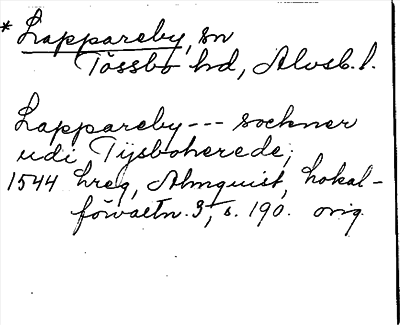 * Lappareby, sn
Tössbo hd, Älvsb. l.
Lappareby --- sockner
udi Tijsboherede;
1544 hreg, Almquist, Lokal-
förvaltn. 3, s. 190. orig